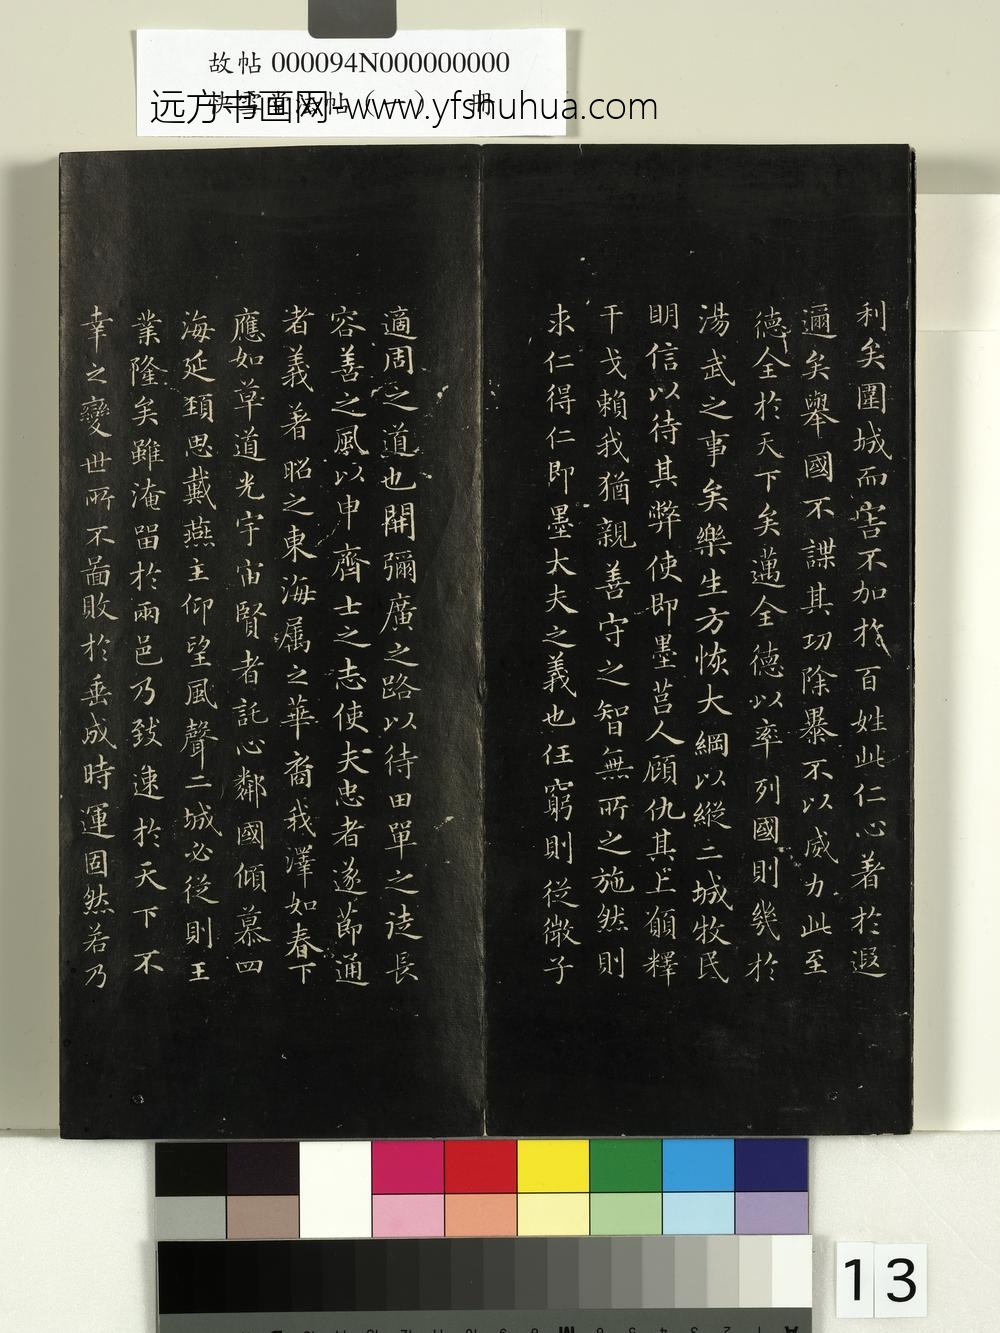 故帖 000094N000000000
远方书画网-www.yfshuhua.com
利矣圍城而害不加於百姓此仁心著於遐
邇矣舉國不謀其功除暴不以威力此至
德全於天下矣邁全德以率列國則幾於
湯武之事矣樂生方恢大綱以縱二城牧民
明信以待其弊使即墨莒人顧仇其上願釋
干戈賴我猶親善守之智無所之施然則
求仁得仁即墨大夫之義也任窮則從微子
適周之道也開彌廣之路以待田單之徒長
容善之風以申齊士之志使夫忠者遂節通
者義著昭之東海属之華裔我澤如春下
應如草道光宇宙賢者託心鄰國傾慕四
海延頸思戴燕主仰望風聲二城必從則王
業隆矣雖淹留於兩邑乃致速於天下不
幸之變世所不啚敗於垂成時運固然若乃
13